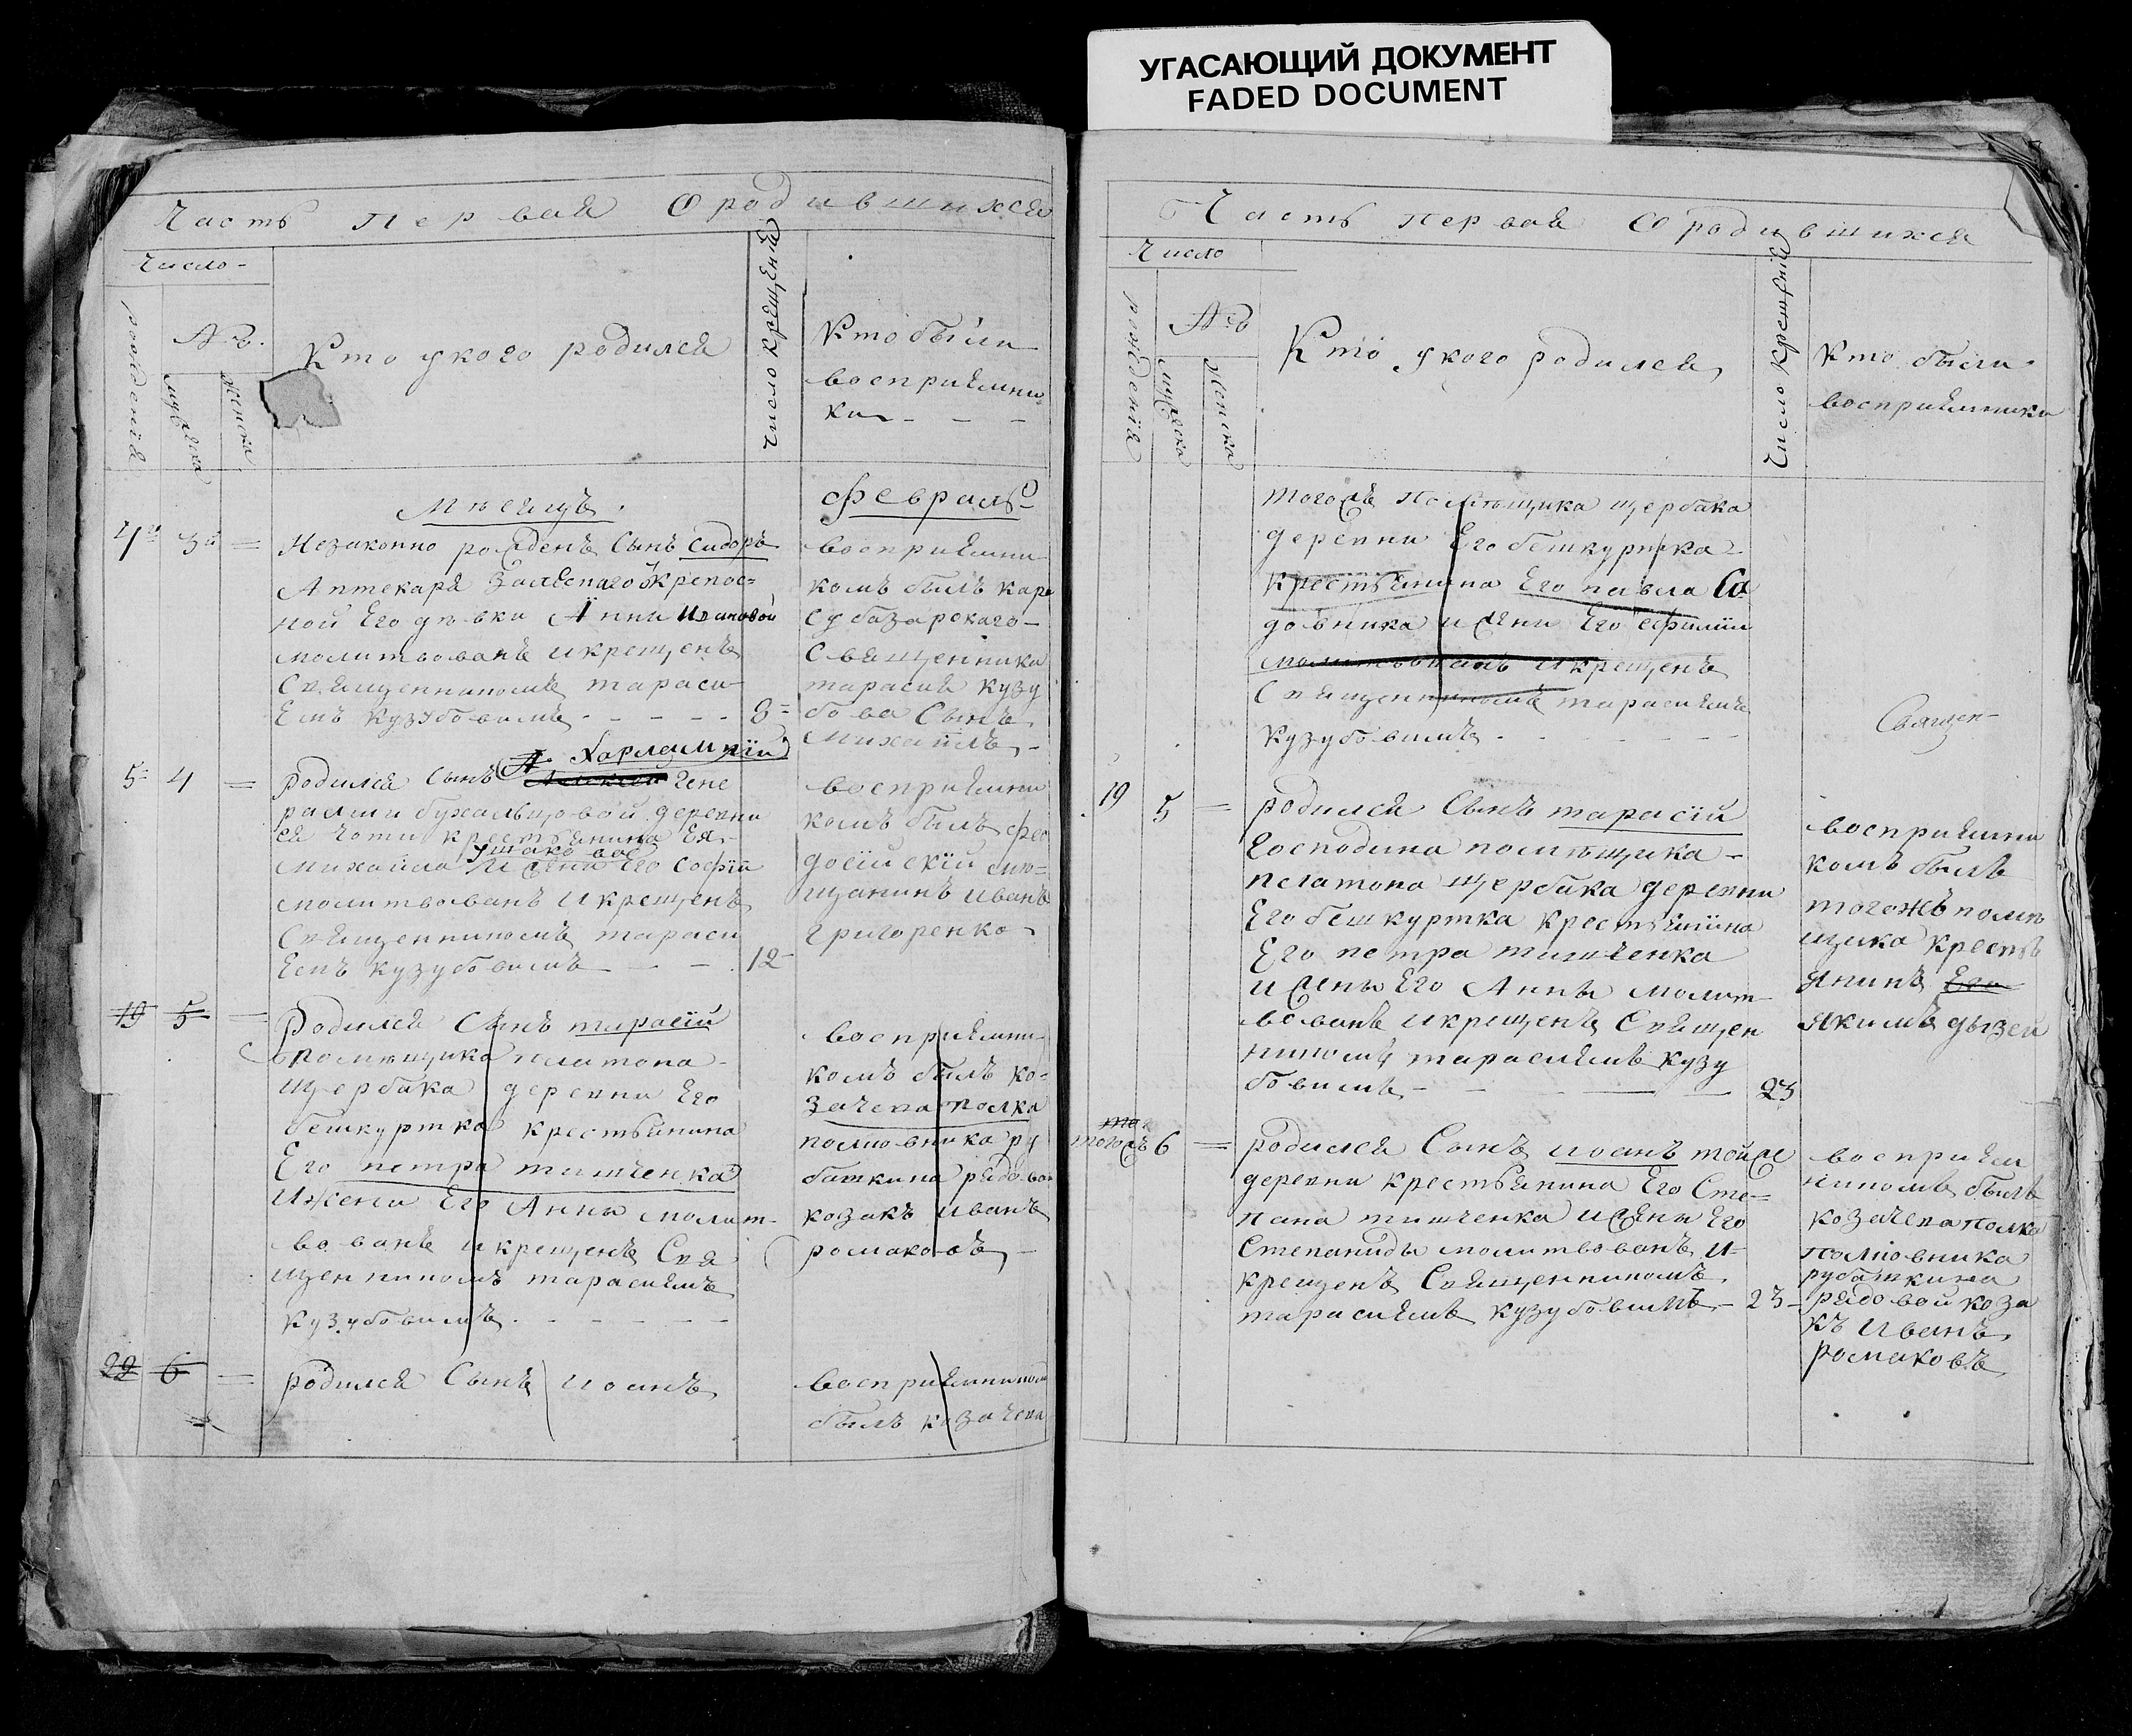 УГАСАЮЩИЙ ДОКУМЕНТ
FADED DOCUMENT
Часть первая О родившихся
Число
рождения
№
мужеска
женска
Кто у кого родился
Число крещения
Кто были
восприемни
ки
Мѣсяцъ
февраль
3й
Незаконно рожденъ сынъ Сидоръ
Аптекаря крепос=
ной Его дѣвки Анны Ивановой
молитвованъ и крещенъ
Священникомъ тараси
Емъ кузубовимъ
8
восприемни
комъ былъ кара
субазарскаго
Священника
тарасия кузу
бова Сынъ
михаилъ
5 4
родился Сынъ Харлампiй
гене
ралши деревни
ея крестьянина Ея
михаила и жени Его Софiи
молитвованъ и крещенъ
Священникомъ тараси
Емъ кузубовимъ
12
восприемни
комъ былъ фео
досiйскiй мѣ=
щанинъ Иванъ
григоренко
19 5
Родился Сынъ тарасiй
помѣщика платона
щербака деревни Его
бешкуртка крестьянина
Его петра тимченка
и жени Его Анны молит
вованъ и крещенъ Свя
щенникомъ тарасиемъ
кузубовимъ
восприемни
комъ былъ ко=
зачева полка
полковника ру
башкина рядовои
козакъ Иванъ
ромаковъ
22 6
родился Сынъ иоанъ
восприемником
былъ козачева
Часть первая О родившихся
Число
рождения
№
мужеска
женска
Кто у кого родился
Число крещения
Кто были
восприемники
тогожъ помѣщика щербака
деревни Его бешкуртка
крестьянина Его павла Са
довника и жени Его
молитвованъ и крещенъ
Священникомъ тарасиемъ
кузубовимъ
Священ-
19 5
родился Сынъ тарасiй
Господина помѣщика
платона щербака деревни
Его бешкуртка крестьянина
Его петра тимченка
и жены Его Анны молит
вованъ и крещенъ Священ
никомъ тарасиемъ кузу
бовимъ
23
восприемни
комъ былъ
тогожъ помѣ
щика кресть
янинъ Его
якимъ дызей
тогожъ 6
родился Сынъ иоанъ тойже
деревни крестьянина Его Сте=
пана тимченка и жены Его
Степаниды молитвованъ и=
крещенъ Священникомъ
тарасиемъ кузубовимъ 23
восприем
никомъ былъ
козачева полка
полковника
рубашкина
рядовой коза
къ Иванъ
ромаковъ